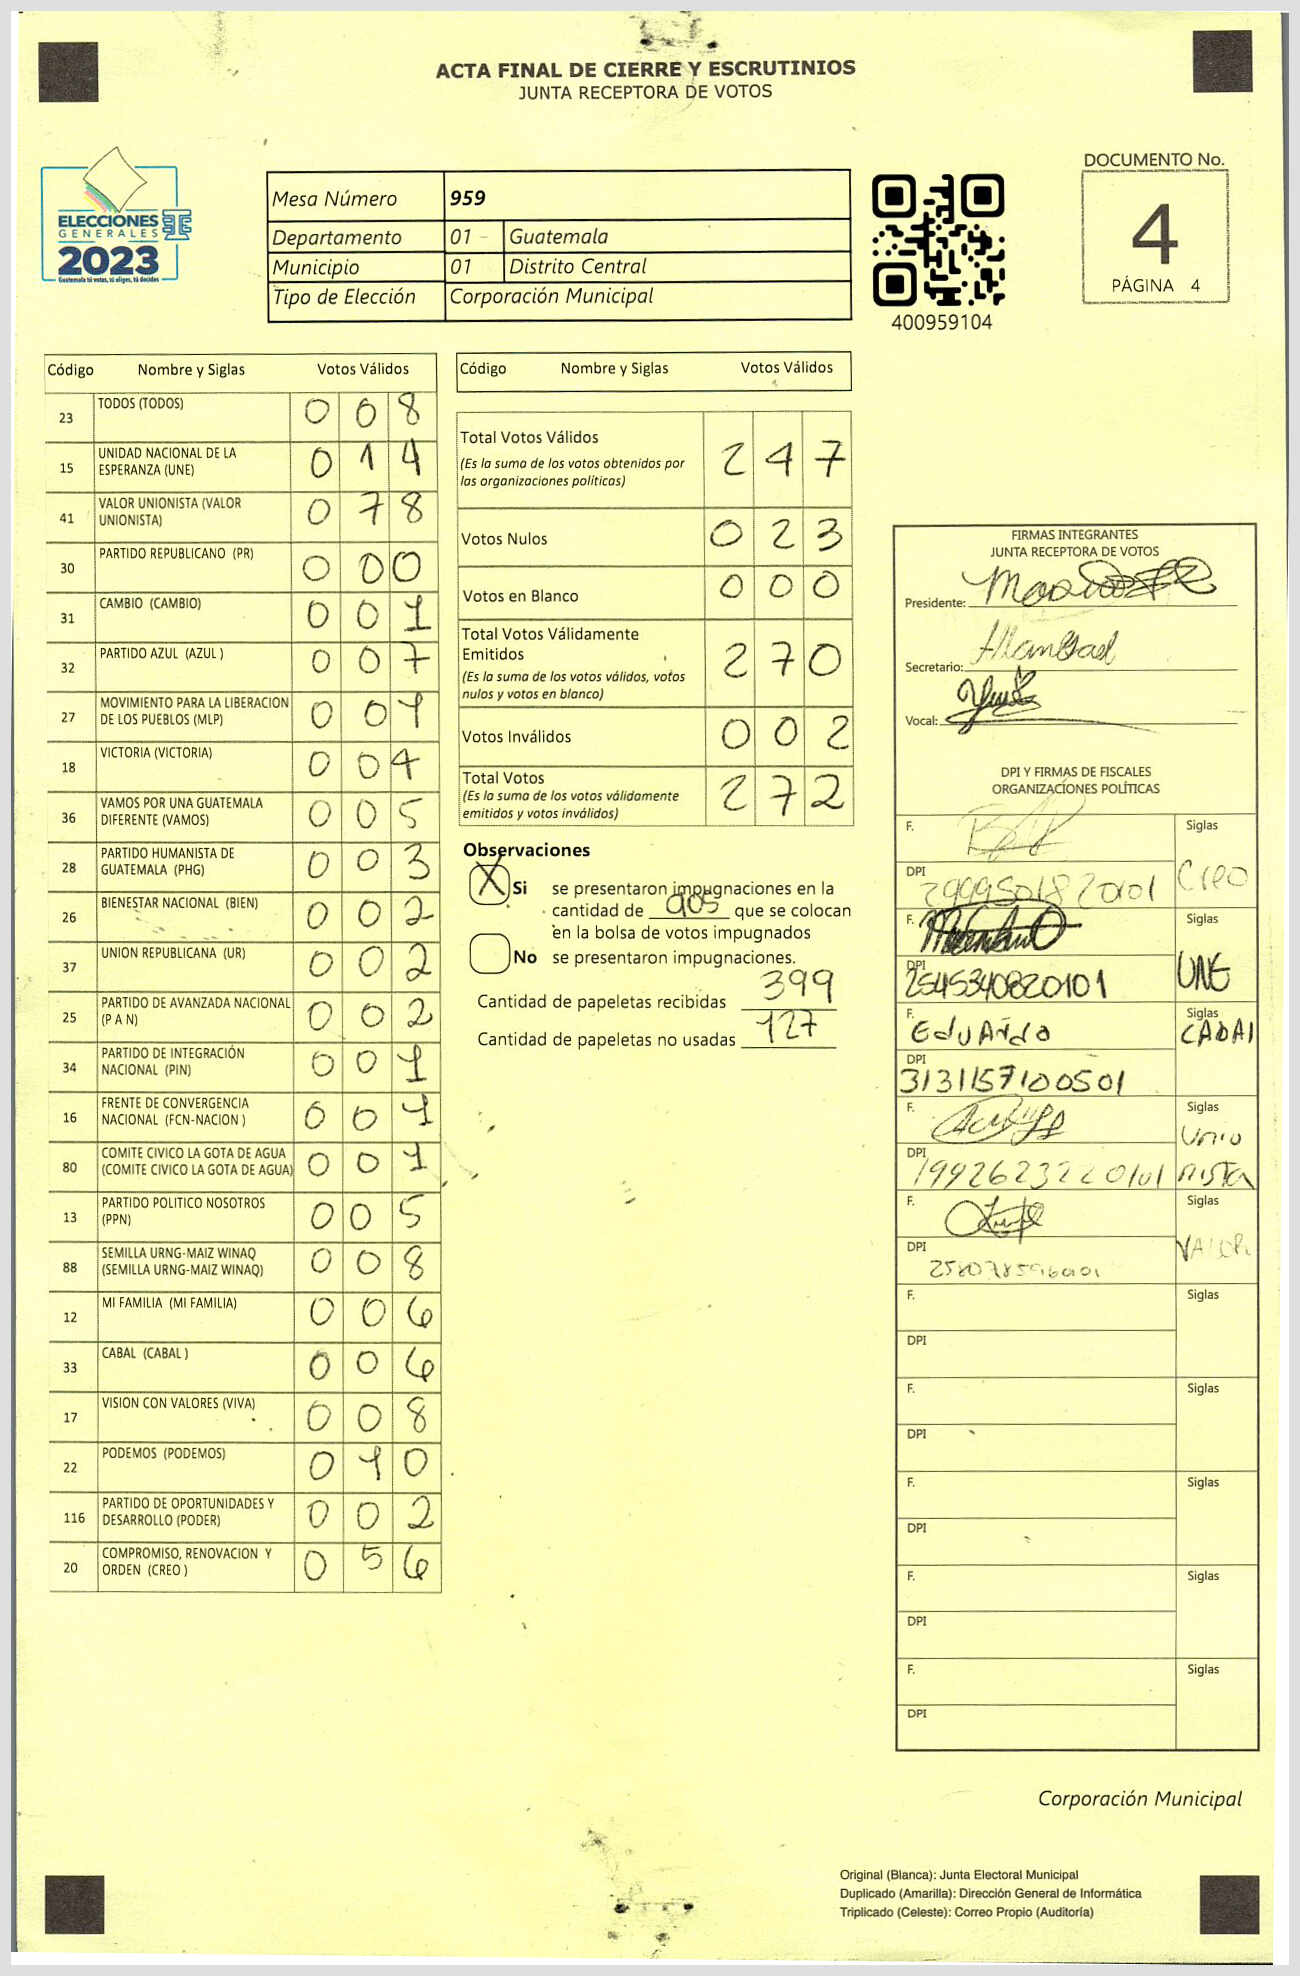 ACTA FINAL DE CIERRE Y ESCRUTINIOS
JUNTA RECEPTORA DE VOTOS
ELECCIONES
GENERALES
2023
Guatemala tú votas, tú eliges, tú decides
Mesa Número 959
Departamento 01 Guatemala
Municipio 01 Distrito Central
Tipo de Elección Corporación Municipal
400959104
DOCUMENTO No.
4
PÁGINA 4
Código Nombre y Siglas Votos Válidos
23 TODOS (TODOS) 0 0 8
15 UNIDAD NACIONAL DE LA ESPERANZA (UNE) 0 1 4
41 VALOR UNIONISTA (VALOR UNIONISTA) 0 7 8
30 PARTIDO REPUBLICANO (PR) 0 0 0
31 CAMBIO (CAMBIO) 0 0 1
32 PARTIDO AZUL (AZUL ) 0 0 7
27 MOVIMIENTO PARA LA LIBERACION DE LOS PUEBLOS (MLP) 0 0 9
18 VICTORIA (VICTORIA) 0 0 4
36 VAMOS POR UNA GUATEMALA DIFERENTE (VAMOS) 0 0 5
28 PARTIDO HUMANISTA DE GUATEMALA (PHG) 0 0 3
26 BIENESTAR NACIONAL (BIEN) 0 0 2
37 UNION REPUBLICANA (UR) 0 0 2
25 PARTIDO DE AVANZADA NACIONAL (P A N) 0 0 2
34 PARTIDO DE INTEGRACIÓN NACIONAL (PIN) 0 0 1
16 FRENTE DE CONVERGENCIA NACIONAL (FCN-NACION ) 0 0 1
80 COMITE CIVICO LA GOTA DE AGUA (COMITE CIVICO LA GOTA DE AGUA) 0 0 1
13 PARTIDO POLITICO NOSOTROS (PPN) 0 0 5
88 SEMILLA URNG-MAIZ WINAQ (SEMILLA URNG-MAIZ WINAQ) 0 0 8
12 MI FAMILIA (MI FAMILIA) 0 0 6
33 CABAL (CABAL ) 0 0 6
17 VISION CON VALORES (VIVA) 0 0 8
22 PODEMOS (PODEMOS) 0 1 0
116 PARTIDO DE OPORTUNIDADES Y DESARROLLO (PODER) 0 0 2
20 COMPROMISO, RENOVACION Y ORDEN (CREO ) 0 5 6
Código Nombre y Siglas Votos Válidos
Total Votos Válidos 2 4 7
(Es la suma de los votos obtenidos por
las organizaciones políticas)
Votos Nulos 0 2 3
Votos en Blanco 0 0 0
Total Votos Válidamente
Emitidos 2 7 0
(Es la suma de los votos válidos, votos
nulos y votos en blanco)
Votos Inválidos 0 0 2
Total Votos 2 7 2
(Es la suma de los votos válidamente
emitidos y votos inválidos)
Observaciones
X Si se presentaron impugnaciones en la
cantidad de 005 que se colocan
en la bolsa de votos impugnados
No se presentaron impugnaciones.
Cantidad de papeletas recibidas 399
Cantidad de papeletas no usadas 127
FIRMAS INTEGRANTES
JUNTA RECEPTORA DE VOTOS
Presidente:
Secretario:
Vocal:
DPI Y FIRMAS DE FISCALES
ORGANIZACIONES POLÍTICAS
F. Siglas
DPI 299950182 0101 Creo
F. Siglas
DPI 2545340820101 UNE
F. EDUARdO Siglas
DPI 3131157100501 CABAL
F. Siglas
DPI 1992623220101 Unionista
F. Siglas
DPI VALOR
F. Siglas
DPI
F. Siglas
DPI
F. Siglas
DPI
F. Siglas
DPI
F. Siglas
DPI
Corporación Municipal
Original (Blanca): Junta Electoral Municipal
Duplicado (Amarilla): Dirección General de Informática
Triplicado (Celeste): Correo Propio (Auditoría)